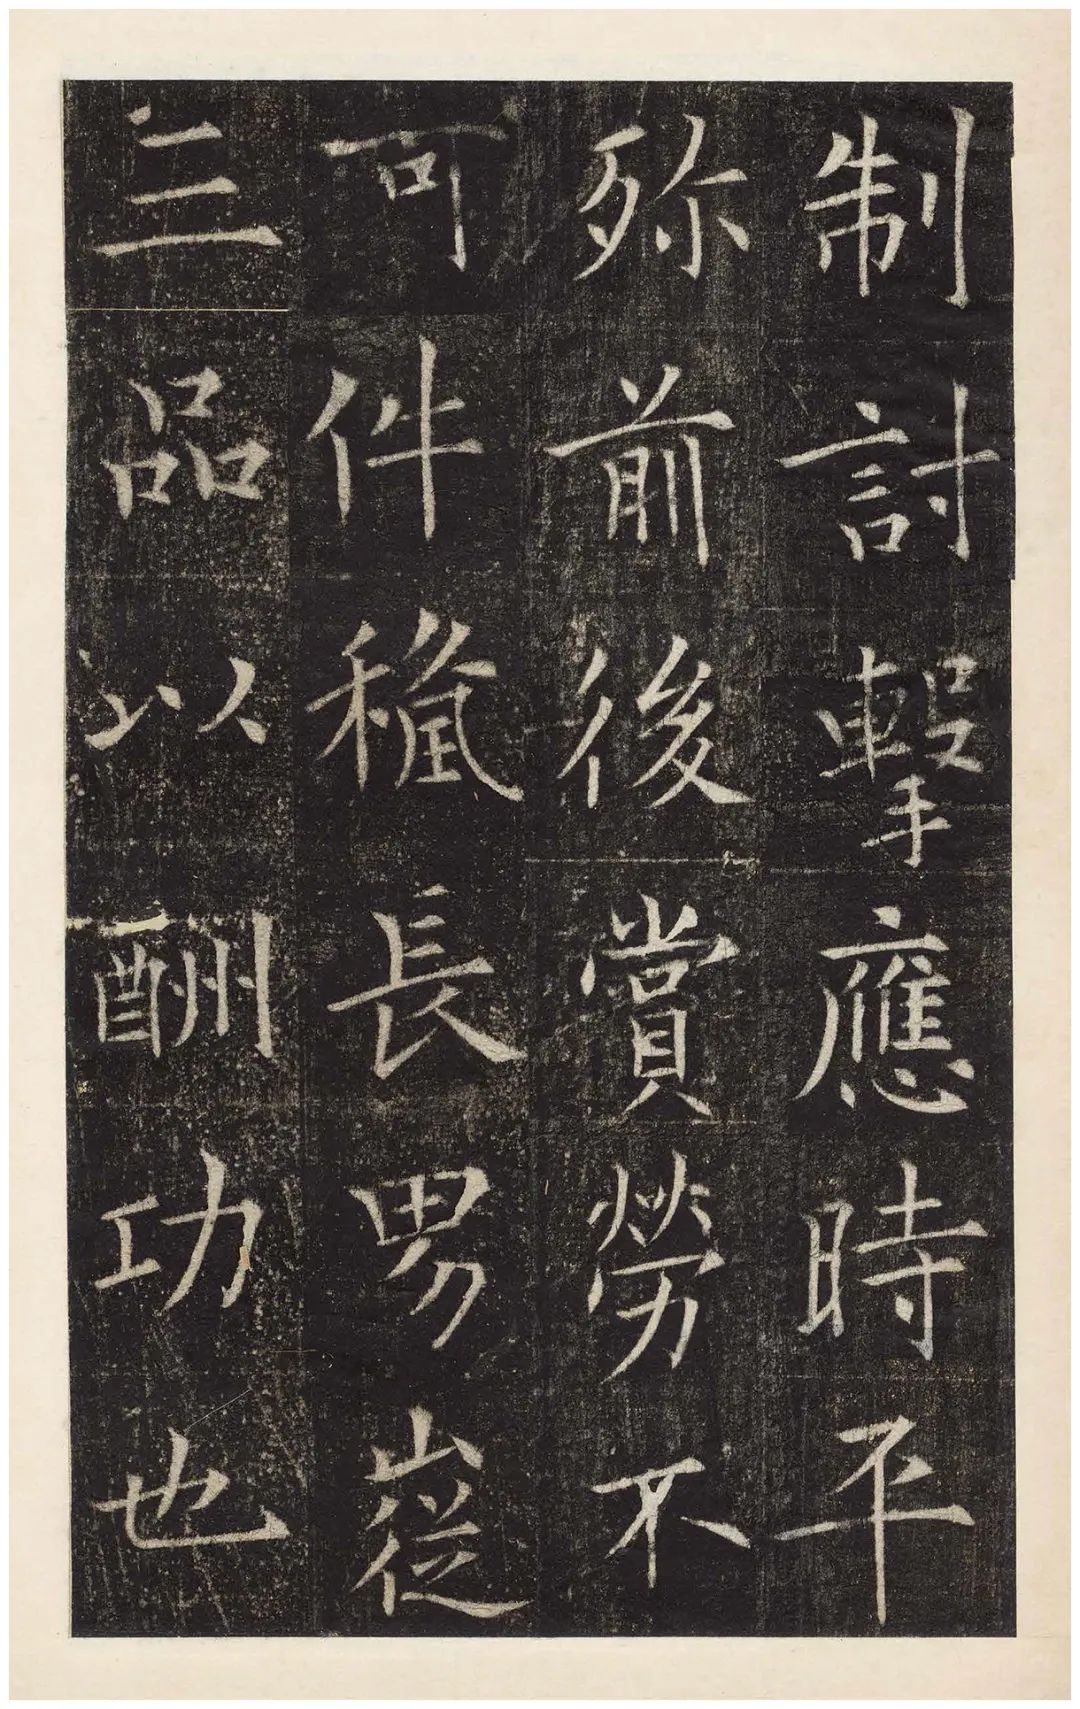 制討擊應時平
殄前後賞勞不
可件長男嵷
三品以酬功也